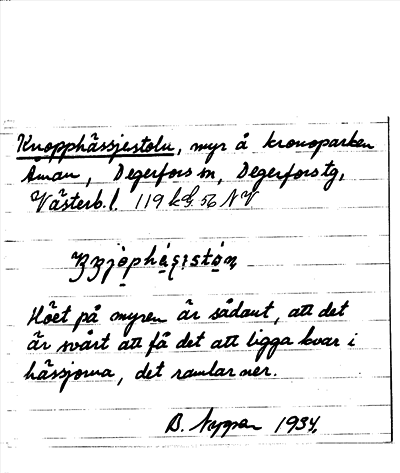 Knopphässjestoln, myr å kronoparken
Åman, Degerfors sn, Degerfors tg,
Västerb. l. 119 56 NV
Höet på myren är sådant, att det
är svårt att få det att ligga kvar i
hässjorna, det ramlar ner.
B. Nygren 1934.